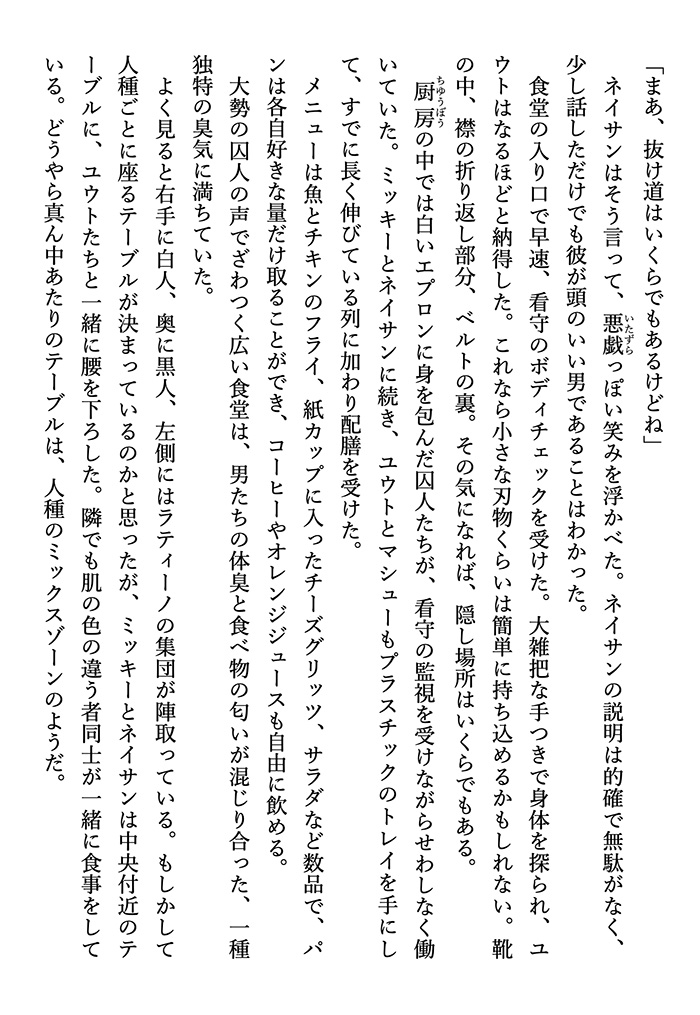 「まあ、抜け道はいくらでもあるけどね」
ネイサンはそう言って、悪戯っぽい笑みを浮かべた。ネイサンの説明は的確で無駄がなく、
少し話しただけでも彼が頭のいい男であることはわかった。
食堂の入り口で早速、看守のボディチェックを受けた。大雑把な手つきで身体を探られ、ユ
ウトはなるほどと納得した。これなら小さな刃物くらいは簡単に持ち込めるかもしれない。靴
の中、襟の折り返し部分、ベルトの裏。その気になれば、隠し場所はいくらでもある。
厨房の中では白いエプロンに身を包んだ囚人たちが、看守の監視を受けながらせわしなく働
いていた。ミッキーとネイサンに続き、ユウトとマシューもプラスチックのトレイを手にし
て、すでに長く伸びている列に加わり配膳を受けた。
メニューは魚とチキンのフライ、紙カップに入ったチーズグリッツ、サラダなど数品で、パ
ンは各自好きな量だけ取ることができ、コーヒーやオレンジジュースも自由に飲める。
大勢の囚人の声でざわつく広い食堂は、男たちの体臭と食べ物の匂いが混じり合った、一種
独特の臭気に満ちていた。
よく見ると右手に白人、奥に黒人、左側にはラティーノの集団が陣取っている。もしかして
人種ごとに座るテーブルが決まっているのかと思ったが、ミッキーとネイサンは中央付近のテ
ーブルに、ユウトたちと一緒に腰を下ろした。隣でも肌の色の違う者同士が一緒に食事をして
いる。どうやら真ん中あたりのテーブルは、人種のミックスゾーンのようだ。
いたずら
ちゅうぼう